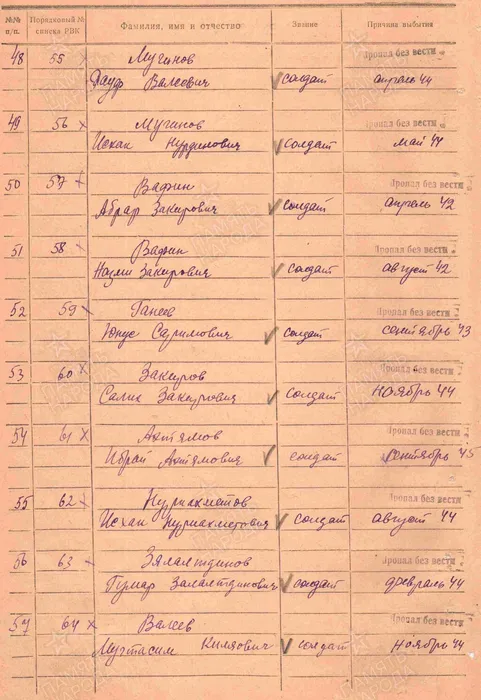 №№ п/п. Порядковый № списка РВК Фамилия, имя и отчество Звание Причина выбытия
48 55 Мугинов Пропал без вести
Дауф Валеевич солдат апрель 44
49 56 Мугинов Пропал без вести
Исхак Нурдинович солдат май 44
50 57 Вафин Пропал без вести
Абрар Закирович солдат апрель 42
51 58 Вафин Пропал без вести
Назми Закирович солдат август 42
52 59 Ганеев Пропал без вести
Юнус Саримович солдат сентябрь 43
53 60 Закиров Пропал без вести
Салих Закирович солдат ноябрь 44
54 61 Ахтямов Пропал без вести
Ибрай Ахтямович солдат сентябрь 43
55 62 Нуриахметов Пропал без вести
Исхак Нуриахметович солдат август 44
56 63 Зялалтдинов Пропал без вести
Гумар Залалтдинович солдат февраль 44
57 64 Валеев Пропал без вести
Мугтасим Килявич солдат ноябрь 44